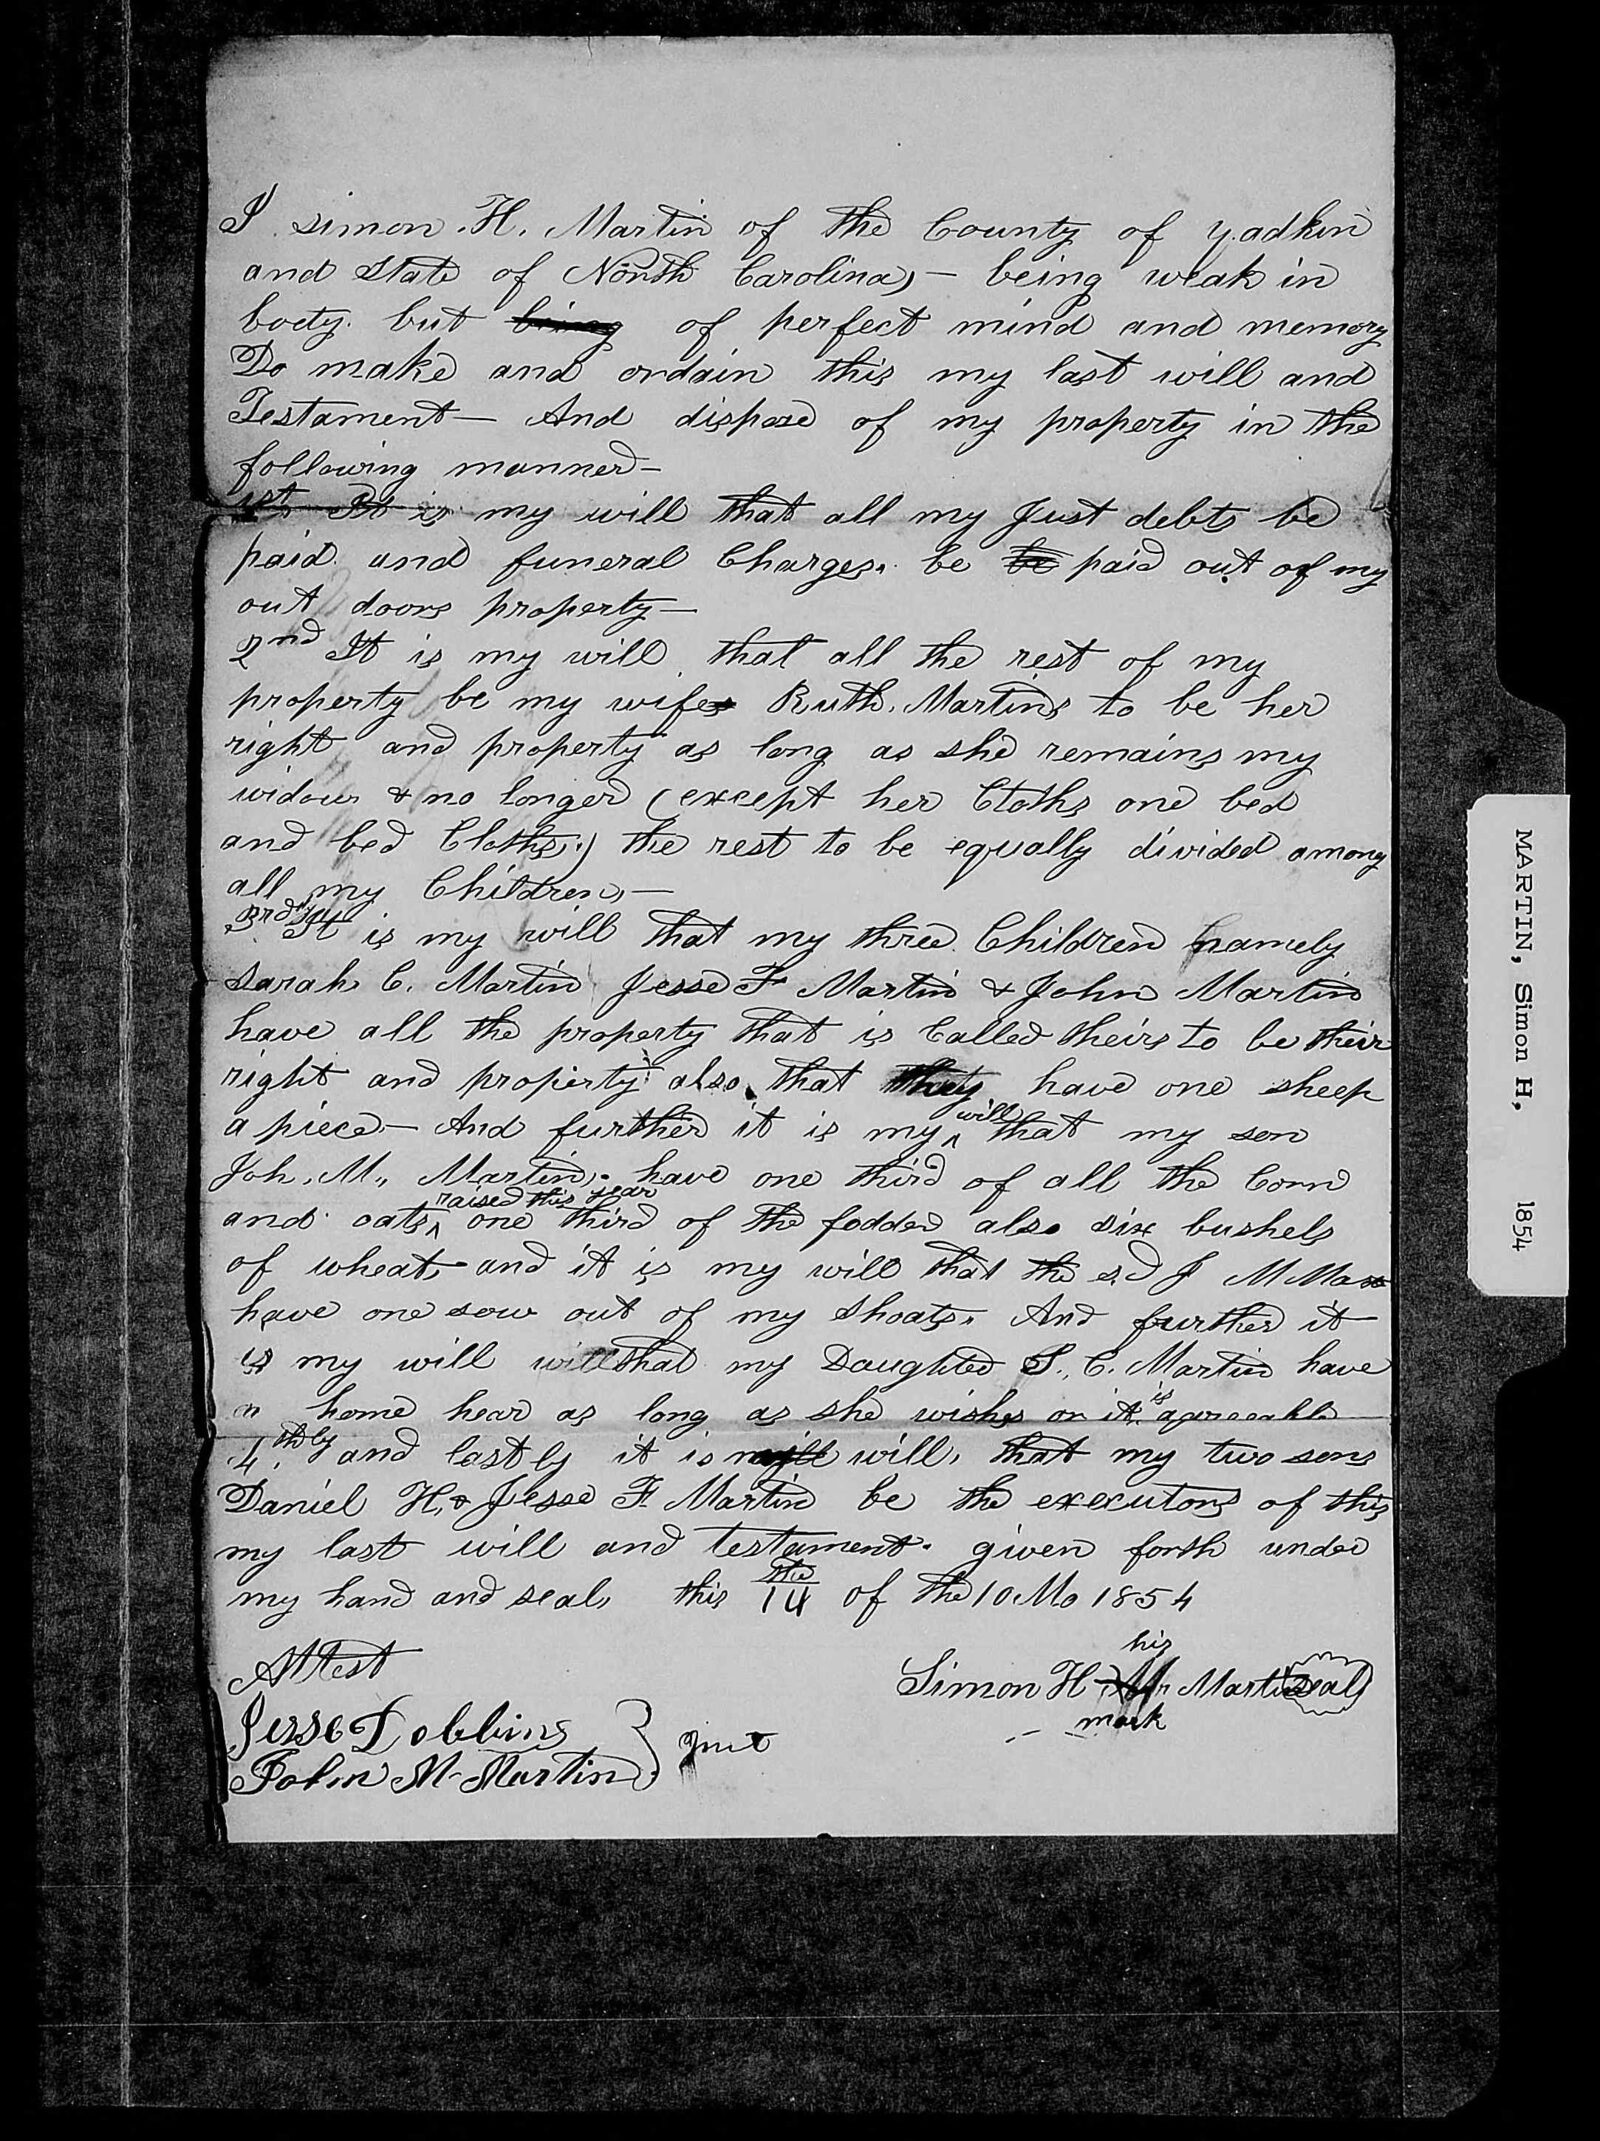 I Simon H. Martin of the County of Yadkin
and State of North Carolina, — being weak in
body but being of perfect mind and memory
Do make and ordain this my last will and
Testament — And dispose of my property in the
following manner —
1st It is my will that all my Just debts be
paid and funeral Charges. be be paid out of my
out doors property —
2nd It is my will that all the rest of my
property be my wifes Ruth Martins to be her
right and property as long as she remains my
widow & no longer (except her Cloths one bed
and bed Cloths.) the rest to be equally divided among
all my Children, —
3rdly It is my will that my three Children namely
Sarah C. Martin Jesse F Martin & John Martin
have all the property that is Called theirs to be their
right and property; also that they have one sheep
a piece — And further it is my ^ will that my son
Joh. M. Martin. have one third of all the Corn
and oats ^ raised this year one third of the fodder also six bushels
of wheat and it is my will that the sd J M Mar
have one sow out of my Shoats. And further it
is my will will that my Daughter S. C. Martin have
a home hear as long as she wishes or it is agreeable
4.thly and lastly it is my will that my two sons
Daniel H. & Jesse F Martin be the executors of this
my last will and testament. given forth under
my hand and seal, this 14 the of the 10 Mo 1854
his
Attest
Simon H Martin seal
mark
Jesse Dobbins
John M Martin } Jurt
MARTIN, Simon H, 1854